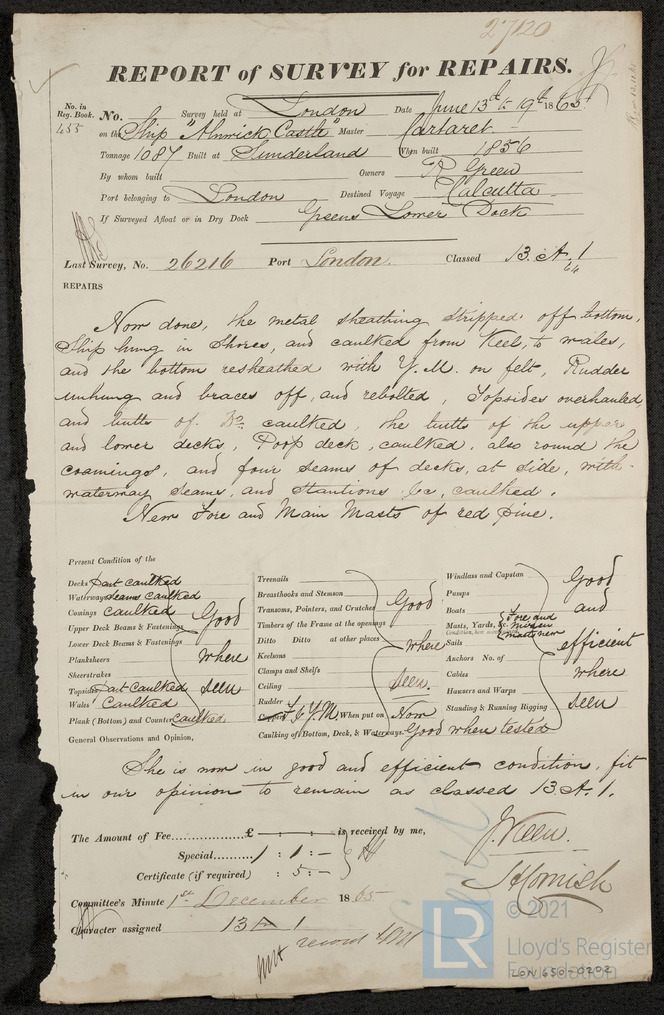 27120
REPORT of SURVEY for REPAIRS.
No. in Reg. Book. No. Survey held at London Date June 13th to 19th 1865
455 on the Ship "Alnwick Castle" Master Cartaret
Tonnage 1087 Built at Sunderland When built 1856
By whom built Owners R Green
Port belonging to London Destined Voyage Calcutta
If Surveyed Afloat or in Dry Dock Greens Lower Dock
Last Survey, No. 26216 Port London. Classed 13. A. 1
64
REPAIRS
Now done, the metal sheathing stripped off bottom,
Ship hung in Shores, and caulked from Keel, to wales,
and the bottom resheathed with Y.M. on felt, Rudder
unhung and braces off, and rebolted, Topsides overhauled,
and butts of Do caulked, the butts of the upper
and lower decks, Poop deck, caulked, also round the
coamings, and four seams of decks, at side, with
waterway seams, and Stantions &c, caulked.
New Fore and Main Masts of red pine.
Present Condition of the
Decks Part caulked
Waterways seams caulked
Comings caulked
Upper Deck Beams & Fastenings
Lower Deck Beams & Fastenings
Plansheers
Sheerstrakes
Topsides Part caulked
Wales Caulked
Plank (Bottom) and Counter caulked
Good
where
seen
Treenails
Breasthooks and Stemson
Transoms, Pointers, and Crutches
Timbers of the Frame at the openings
Ditto Ditto at other places
Keelsons
Clamps and Shelfs
Ceiling
Rudder
Copper F & Y.M When put on Now
Caulking of Bottom, Deck, & Waterways. Good when tested
Good
where
seen.
Windlass and Capstan
Pumps
Boats
Masts, Yards, &c. Fore and
Condition, how
masts new
Sails
Anchors No. of
Cables
Hausers and Warps
Standing & Running Rigging
Good
and
efficient
where
seen
General Observations and Opinion,
She is now in good and efficient condition, fit
in our opinion to remain as classed 13. A. 1.
The Amount of Fee £ - : - : - is received by me,
Special 1 : 1 : -
Certificate (if required) : 5 : -
J. Keen.
Cornish
Committee's Minute 1st December 1865
Character assigned 13 A 1
record
© 2021
LR
Lloyd's Register
Foundation
LON 650-0202